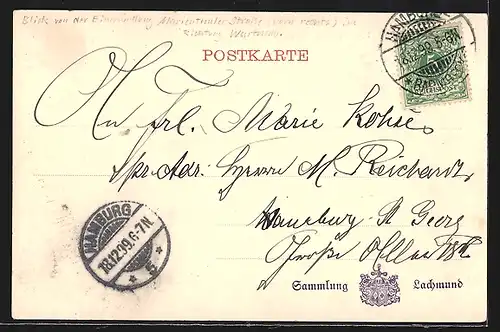 Blick von der Einmündung Marienthaler Straße (vorn rechts) in
Richtung
POSTKARTE
HAMBURG
An Frl. Marie Kohse
pr. Adr. Herrn M. Reichardt,
Hamburg-St Georg
Große Allee
HAMBURG
18.12.99.6-7N.
* 5 *
Sammlung Lachmund